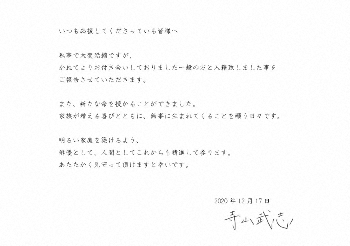 いつも応援してくださっている皆様へ
私事で大変恐縮ですが、
かねてよりお付き合いしておりました一般の方と入籍致しました事を
ご報告させていただきます。
また、新たな命を授かることができました。
家族が増える喜びとともに、無事に生まれてくることを願う日々です。
明るい家庭を築けるよう、
俳優として、人間としてこれからも精進して参ります。
あたたかく見守って頂けますと幸いです。
2020年12月17日
寺山武志